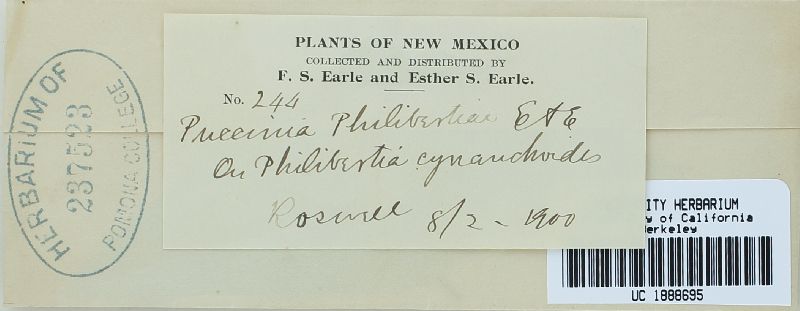 HERBARIUM OF
237523
POMONA COLLEGE
PLANTS OF NEW MEXICO
COLLECTED AND DISTRIBUTED BY
F. S. Earle and Esther S. Earle.
No. 244
Puccinia Philibertiae E & E
On Philibertia cynanchoides
Roswell 8/2 - 1900
ITY HERBARIUM
y of California
erkeley
UC 1888695